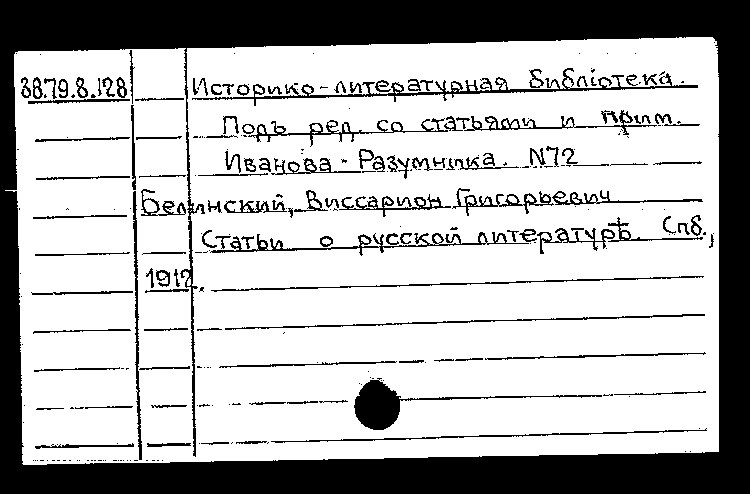 38.79.8.128 Историко-литературная библіотека.
Подъ ред. со статьями и прим.
Иванова-Разумника. N72
Белинский, Виссарион Григорьевич
Статьи о русской литературѣ. Спб.,
1912.